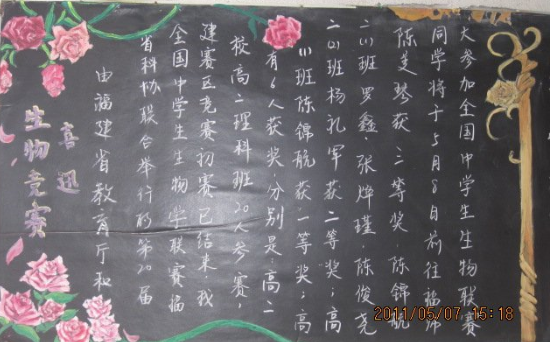 喜迅
生物竞赛
由福建省教育厅和
省科协联合举行的第20届
全国中学生生物学联赛福
建赛区竞赛初赛已结束.我
校高二理科班20人参赛,
有6人获奖.分别是:高二
(1)班陈锦航获一等奖;高
二(2)班杨礼军获二等奖;高
二(1)班罗鑫.张焯瑾.陈俊尧
获三等奖.陈锦航
同学将于5月8日前往福师
大参加全国中学生生物联赛
2011/05/07 15:18